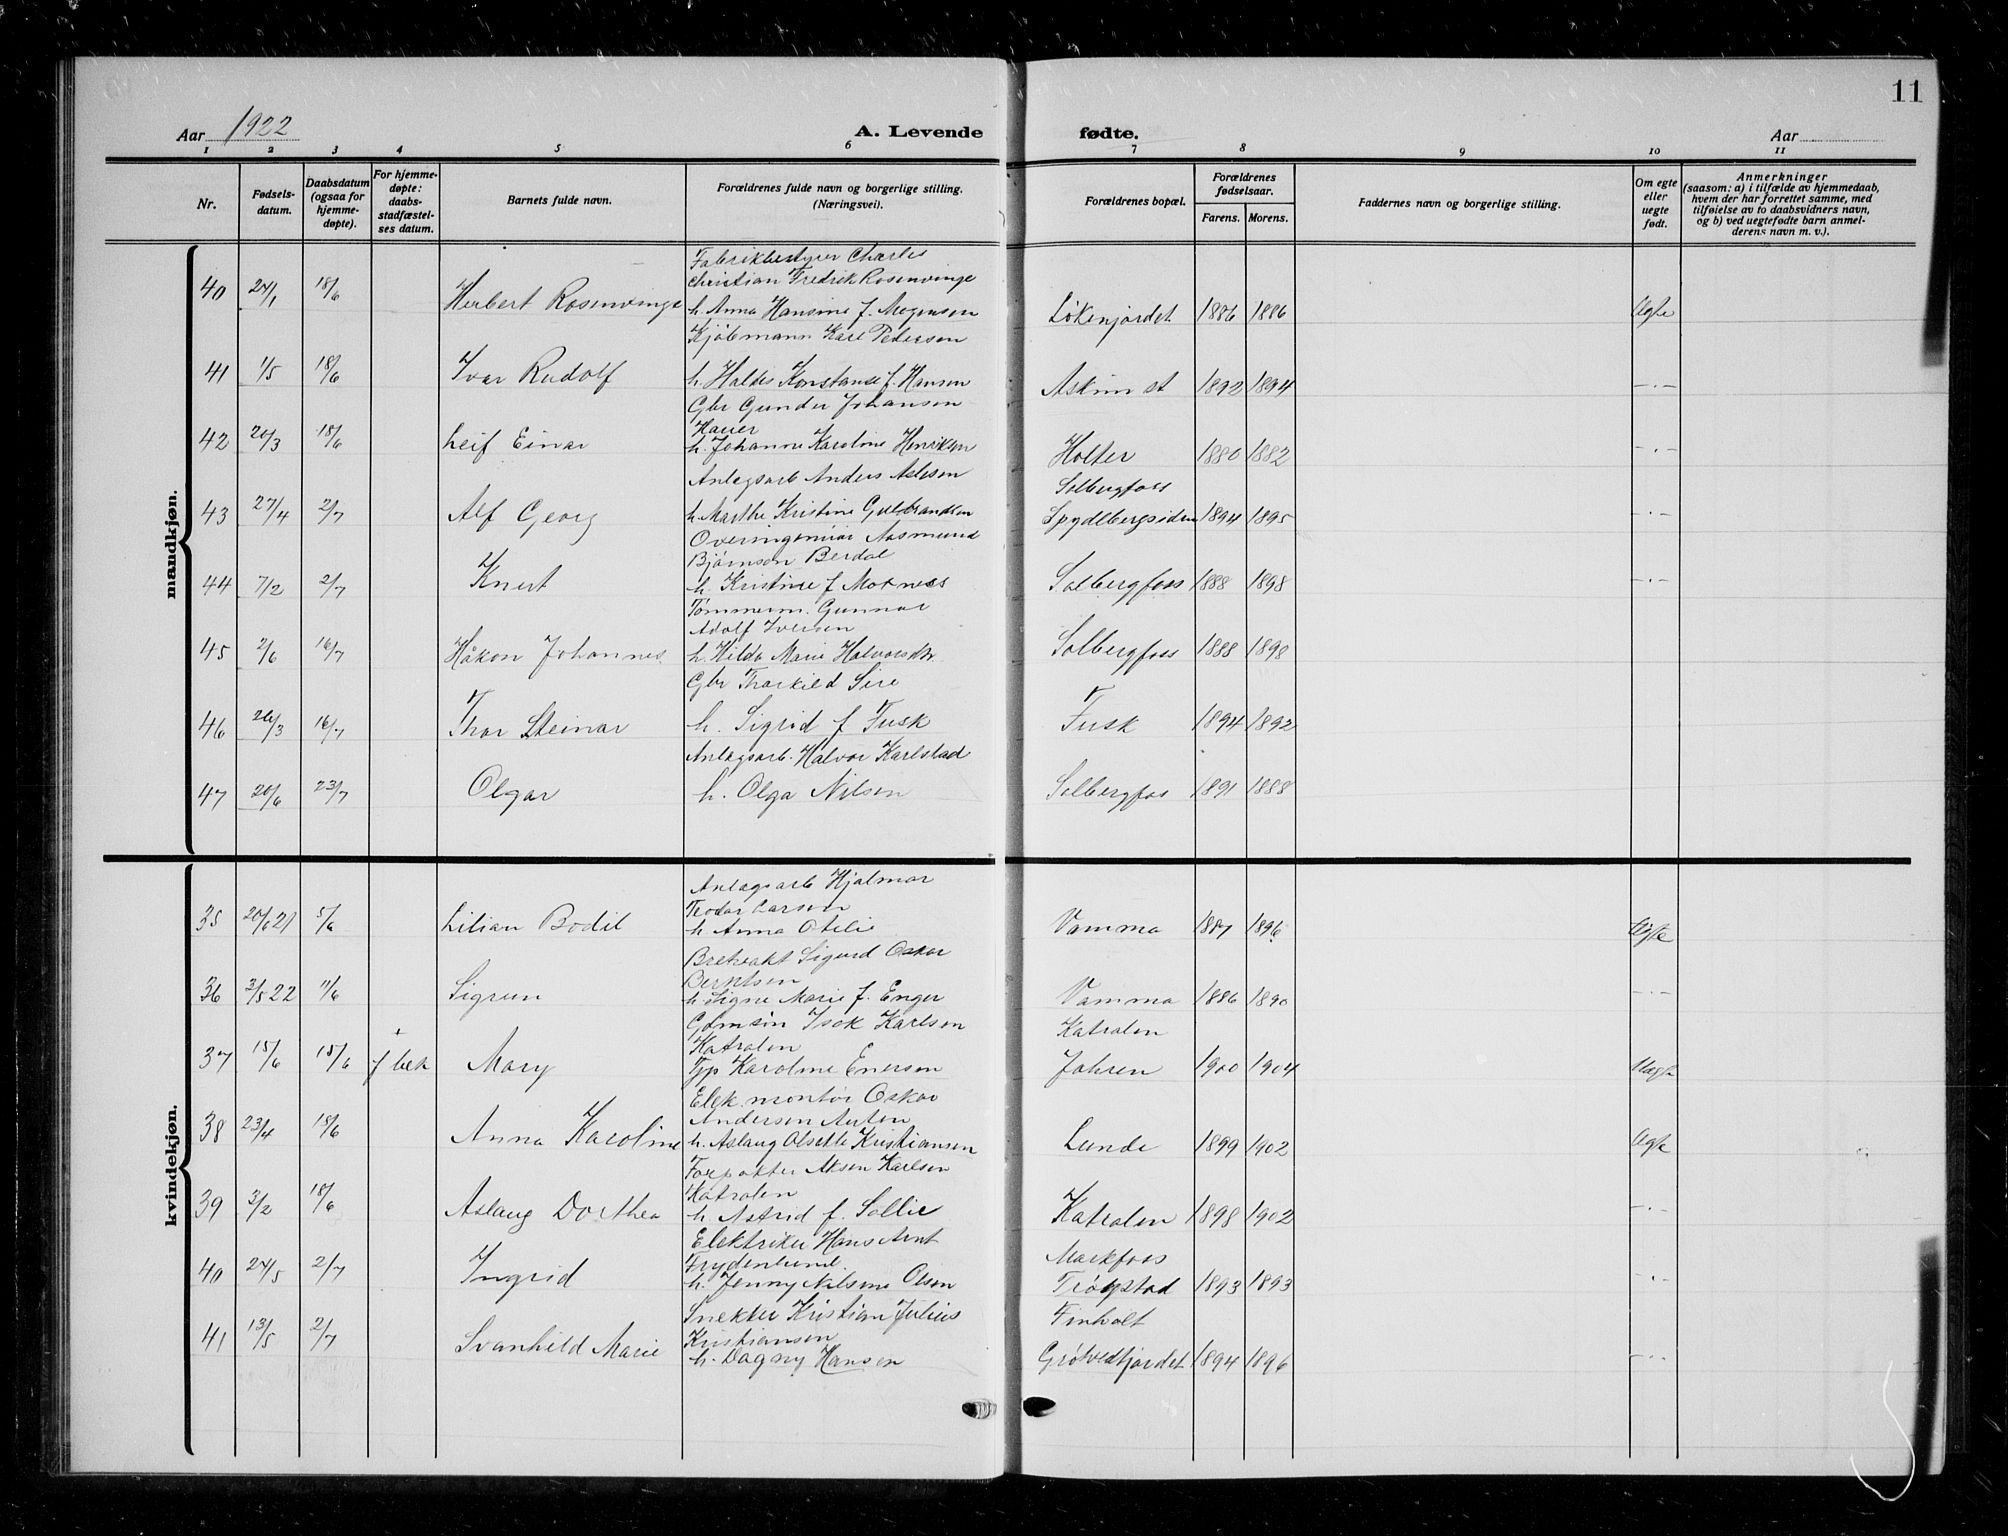 11
Aar 1922 A. Levende fødte. Aar
1 2 3 4 5 6 7 8 9 10 11
Nr.
Fødsels-
datum.
Daabsdatum
(ogsaa for
hjemme-
døpte).
For hjemme-
døpte:
daabs-
stadfæstel-
ses datum.
Barnets fulde navn.
Forældrenes fulde navn og borgerlige stilling.
(Næringsvei).
Forældrenes bopæl.
Forældrenes
fødselsaar.
Farens. Morens.
Faddernes navn og borgerlige stilling.
Om egte
eller
uegte
født.
Anmerkninger
(saasom: a) i tilfælde av hjemmedaab,
hvem der har forrettet samme, med
tilføielse av to daabsvidners navn,
og b) ved uegtefødte barn anmel-
derens navn m. v.).
mandkjøn.
Fabrikbestyrer Charles
Christian Fredrik Rosenvinge
40 24/1 18/6 Herbert Rosenvinge h. Anna Hansine f. Mogensen Løkenjordet 1886 1886 Ægte
Kjøbmann Karl Pedersen
41 1/5 18/6 Ivar Rudolf h. Haldis Konstanse f. Hansen Askim st 1892 1894 -.-
Gbr Gunder Johansen
Hauer
42 20/3 18/6 Leif Einar h. Johanne Karoline Henriksen Holter 1880 1882 -.-
Anlægsarb Anders Aslesen Solbergfoss
43 27/4 2/7 Alf Georg h. Marthe Kristine Gulbrandsen Spydebergsiden 1894 1895 -.-
Overingeniør Aasmund
Bjørnson Berdal
44 7/2 2/7 Knut h. Kristine f Moxness Solbergfoss 1888 1898 -.-
Tømmerm. Gunnar
Adolf Iversen
45 2/6 16/7 Håkon Johannes h. Hilda Marie Halvorsdtr Solbergfoss 1888 1898
Gbr Thorkild Sire
46 26/3 16/7 Thor Steinar h. Sigrid f Fusk Fusk 1894 1892
Anlægsarb. Halvor Karlstad
47 20/6 23/7 Olgar h. Olga Nilsen Solbergfos 1891 1888
kvindekjøn.
Anlægsarb Hjalmar
Teodor Larsen
35 20/6 21 5/6 Lilian Bodil h Anna Otelie Vamma 1887 1896 Ægte
Sigurd Oskar
Berntsen
36 3/5 22 11/6 Sigrun h Signe Marie f. Enger Vamma 1886 1890 -.-
Gdmsøn Isak Karlsen Katralen
Katralen
37 15/6 15/6 Mary Tjp Karoline Enersen Jahren 1900 1904 Uægte
Elek. montør Oskar
Andersen Auten
38 23/4 18/6 Anna Karoline h. Aslaug Olsette Kristiansen Lunde 1899 1902 Ægte
Forpakter Aksen Karlsen
Katralen
39 3/2 18/6 Aslaug Dorthea h Astrid f. Sollie Katralen 1898 1902 -.-
Elektriker Hans Arnt Markfoss
Frydenlund.
40 24/5 2/7 Ingrid h. Jenny Nilsine Olsen Trøgstad 1893 1893 -.-
Snekker Kristian Julius Finholt
Kristiansen
41 13/5 2/7 Svanhild Marie h. Dagny Hansen Grøtvedtjordet 1894 1896 -.-